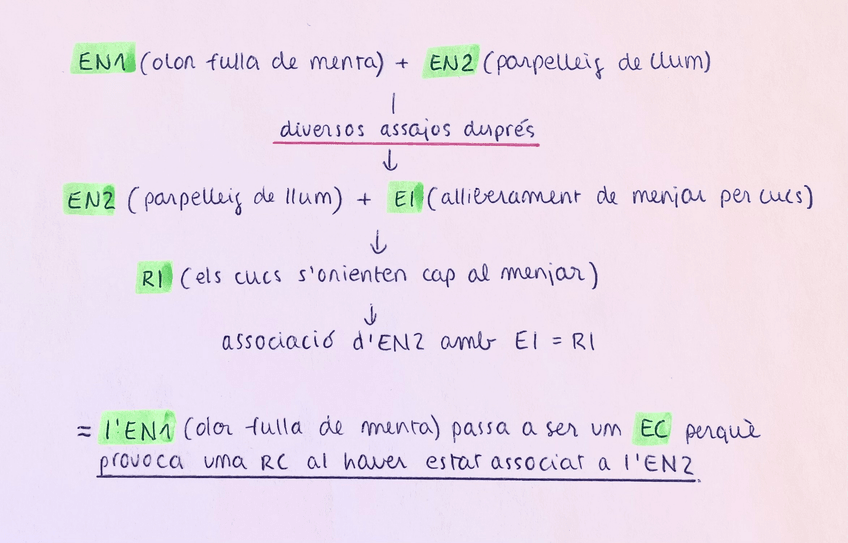 EN1 (olor fulla de menta) + EN2 (parpelleig de llum)
diversos assajos després
↓
EN2 (parpelleig de llum) + EI (alliberament de menjar per cucs)
↓
RI (els cucs s'orienten cap al menjar)
↓
associació d'EN2 amb EI = RI
= l'EN1 (olor fulla de menta) passa a ser un EC perquè
provoca una RC al haver estat associat a l'EN2.